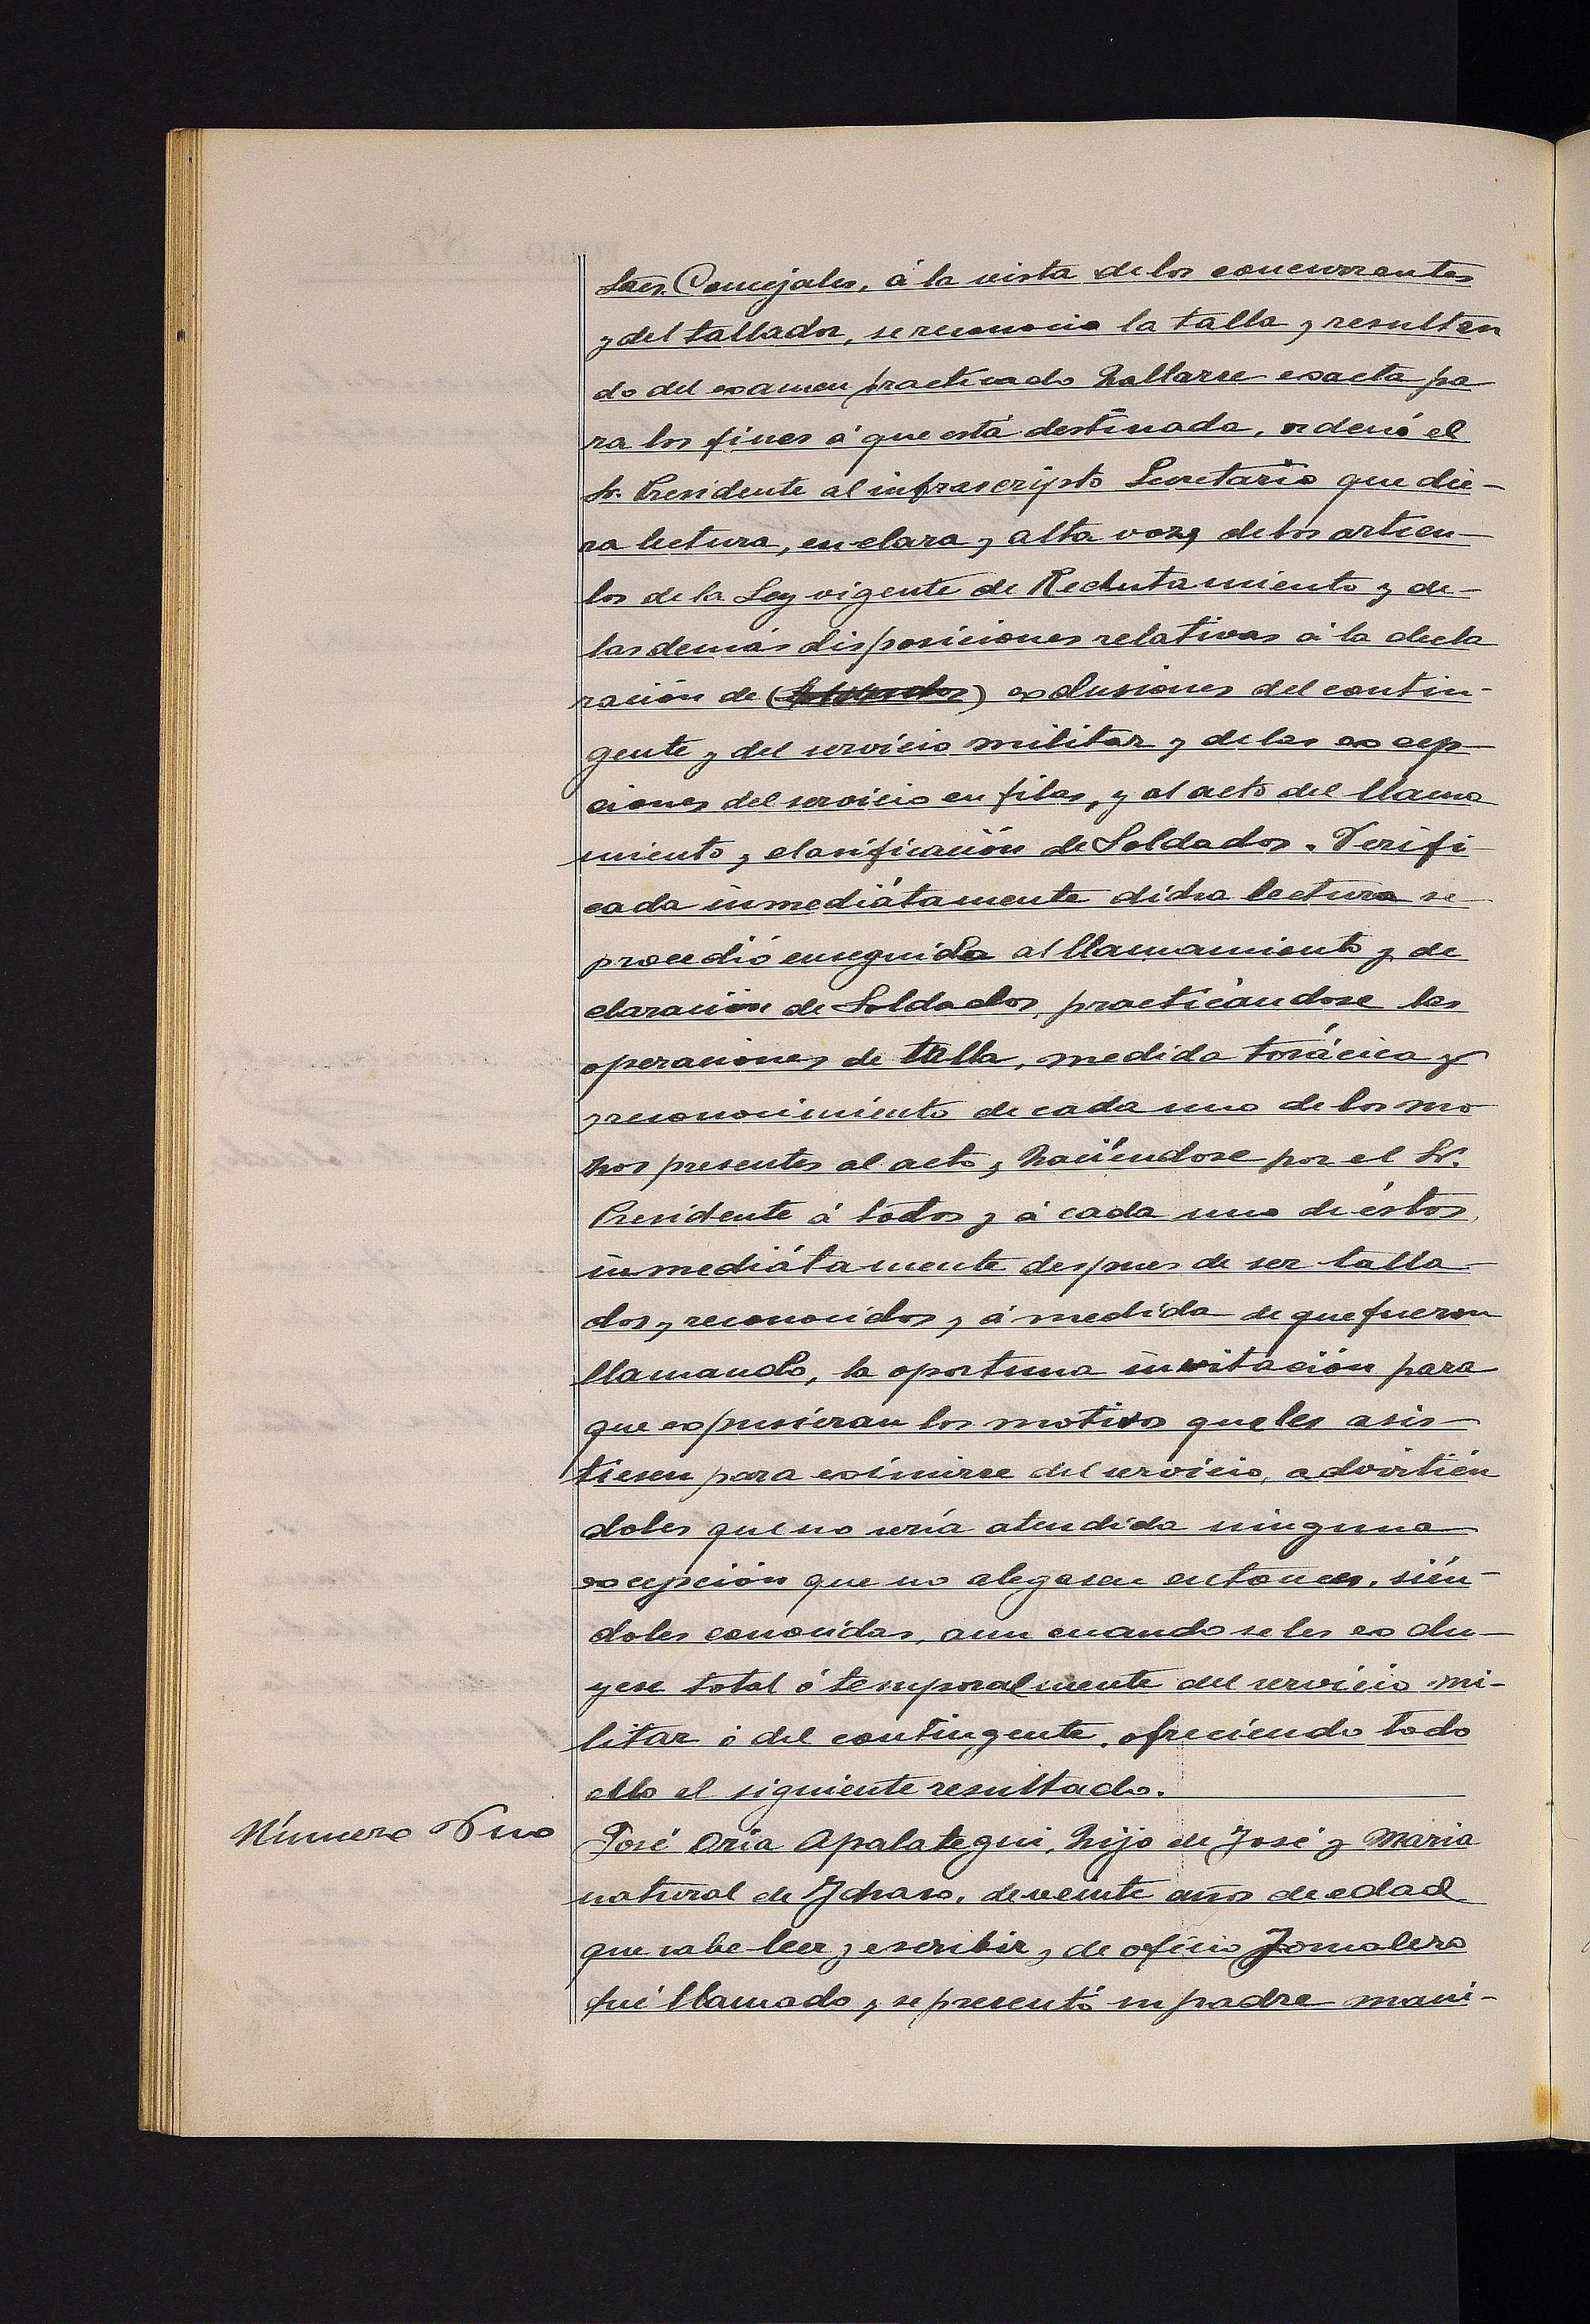 Sres. Concejales, á la vista de los concurrentes
y del tallador, se reconoció la talla y resultan
do del examen practicado hallarse exacta pa
ra los fines á que está destinada, ordenó el
Sr. Presidente al infrascripto Secretario que die-
ra lectura, en clara y alta voz, de los artícu-
los de la Ley vigente de Reclutamiento y de-
las demás disposiciones relativas á la decla
ración de (Soldados) exclusiones del contin-
gente y del servicio militar y de las excep-
ciones del servicio en filas, y al acto del llama
miento y clasificación de Soldados. Verifi-
cada inmediátamente dicha lectura se
procedió enseguida al llamamiento y de
claración de Soldados, practicándose las
operaciones de talla, medida torácica y
reconocimiento de cada uno de los mo
zos presentes al acto, haciéndose por el Sr.
Presidente á todos y á cada uno de éstos,
inmediátamente despues de ser talla-
dos y reconocidos y á medida de que fueron
llamando, la oportuna invitación para
que expusieran los motivos que les asis-
tiesen para eximirse del servicio, advirtién
doles que no sería atendida ninguna
excepción que no alegasen entonces, sién-
doles conocidas, aun cuando se les exclu-
yese total ó temporalmente del servicio mi-
litar ó del contingente, ofreciendo todo
ello el siguiente resultado.
Número Uno
José Oria Apalategui, hijo de José y Maria
natural de Ichaso, de veinte años de edad
que sabe leer y escribir y de oficio Jornalero
fué llamado y se presentó su padre mani-